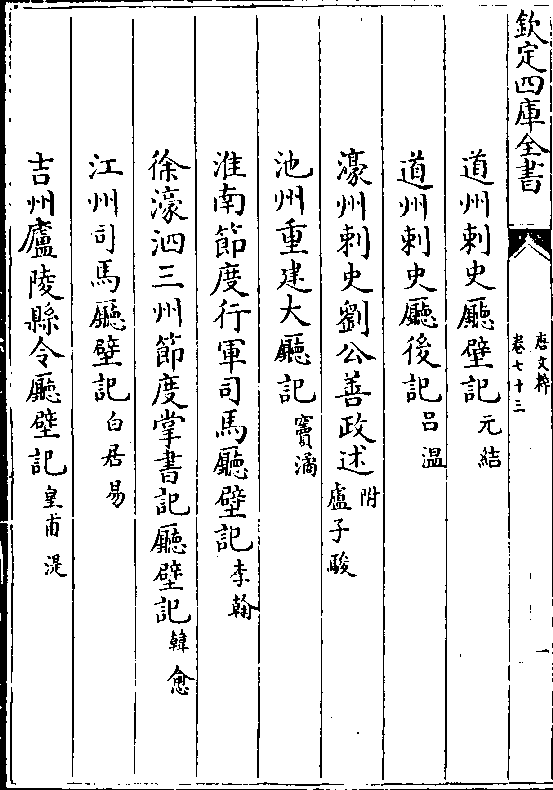 欽定四庫全書
唐文粹
卷七十三
一
道州刺史廳壁記 元結
道州刺史廳後記 呂温
濠州刺史劉公善政述 附 盧子駿
池州重建大廳記 竇潏
淮南節度行軍司馬廳壁記 李翰
徐濠泗三州節度掌書記廳壁記 韓愈
江州司馬廳壁記 白居易
吉州廬陵縣令廳壁記 皇甫湜